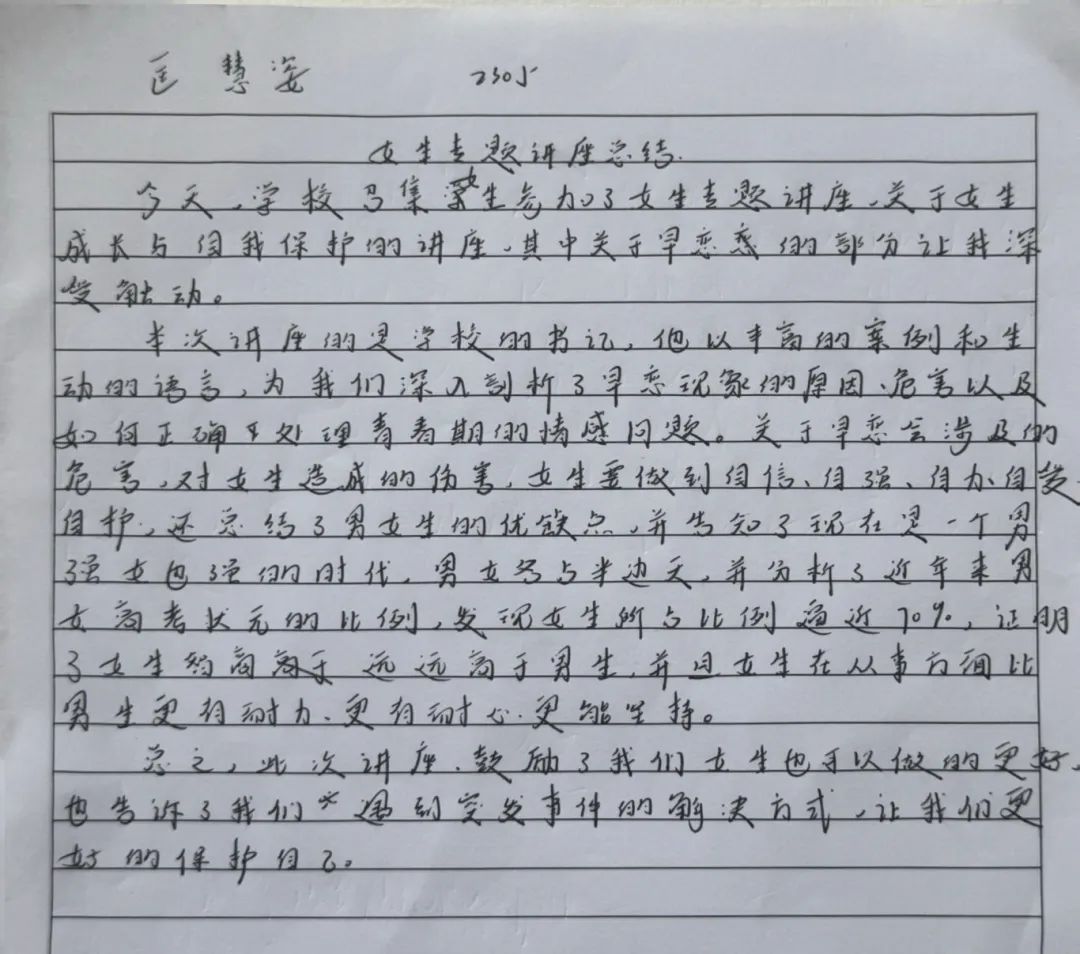 匡慧姿 2305
女生专题讲座总结.
今天,学校召集女生参加了女生专题讲座,关于女生
成长与自我保护的讲座,其中关于早恋惑的部分让我深
受触动。
本次讲座的是学校的书记,他以丰富的案例和生
动的语言,为我们深入剖析了早恋现象的原因、危害以及
如何正确处理青春期的情感问题。关于早恋会涉及的
危害,对女生造成的伤害,女生要做到自信、自强、自力、自爱、
自护,还总结了男女生的优缺点,并告知了现在是一个男
强女也强的时代,男女各占半边天,并分析了近年来男
女高考状元的比例,发现女生所占比例逼近70%,证明
了女生的远远高于男生,并且女生在从事方面比
男生更有耐力、更有耐心、更能坚持。
总之,此次讲座,鼓励了我们女生也可以做的更好,
也告诉了我们遇到突发事件的解决方式,让我们更
好的保护自己。